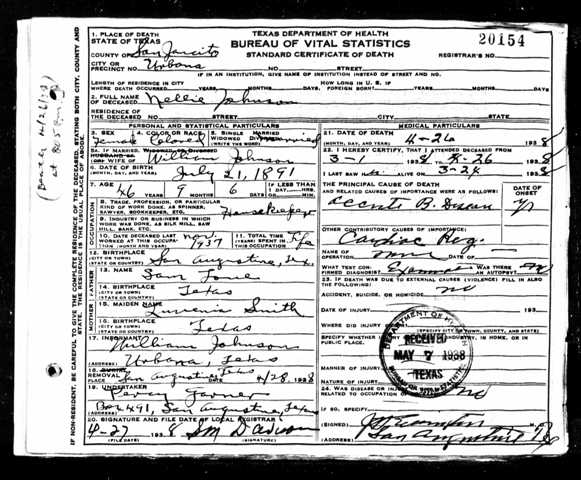 TEXAS DEPARTMENT OF HEALTH
BUREAU OF VITAL STATISTICS
STANDARD CERTIFICATE OF DEATH
20154
REGISTRAR'S NO.
1. PLACE OF DEATH
STATE OF TEXAS
COUNTY OF San Jacinto
CITY OR
PRECINCT NO. Urbana NO. STREET
IF IN AN INSTITUTION, GIVE NAME OF INSTITUTION INSTEAD OF STREET AND NO.
LENGTH OF RESIDENCE IN CITY
WHERE DEATH OCCURRED YEARS MONTHS DAYS
HOW LONG IN U. S. IF
FOREIGN BORN? YEARS MONTHS DAYS
2. FULL NAME
OF DECEASED Nellie Johnson
RESIDENCE OF
THE DECEASED NO. STREET CITY STATE
PERSONAL AND STATISTICAL PARTICULARS
3. SEX Female
4. COLOR OR RACE Colored
5. SINGLE MARRIED
WIDOWED DIVORCED
(WRITE THE WORD) Married
5A. IF MARRIED, WIDOWED OR DIVORCED
HUSBAND OF
(OR) WIFE OF William Johnson
6. DATE OF BIRTH
(MONTH, DAY, AND YEAR) July 21, 1891
7. AGE 46 YEARS 9 MONTHS 6 DAYS
IF LESS THAN
1 DAY, HRS.
MIN.
OCCUPATION
8. TRADE, PROFESSION, OR PARTICULAR
KIND OF WORK DONE, AS SPINNER,
SAWYER, BOOKKEEPER, ETC. Housekeeper
9. INDUSTRY OR BUSINESS IN WHICH
WORK WAS DONE, AS SILK MILL, SAW
MILL, BANK, ETC.
10. DATE DECEASED LAST
WORKED AT THIS OCCUPATION (MONTH AND YEAR) Nov. 1937
11. TOTAL TIME
(YEARS) SPENT IN
THIS OCCUPATION Life
12. BIRTHPLACE
(CITY OR TOWN)
(STATE OR COUNTRY) San Augustine, Tex.
FATHER
13. NAME Sam
14. BIRTHPLACE
(CITY OR TOWN)
(STATE OR COUNTRY) Texas
MOTHER
15. MAIDEN NAME Smith
16. BIRTHPLACE
(CITY OR TOWN)
(STATE OR COUNTRY) Texas
17. INFORMANT William Johnson
(ADDRESS) Urbana, Texas
18. BURIAL
REMOVAL San Augustine, Texas
PLACE DATE 4/28, 1938
19. UNDERTAKER
(ADDRESS) Box 491, San Augustine, Texas
20. SIGNATURE AND FILE DATE OF LOCAL REGISTRAR
4-27 1938
(FILE DATE) (SIGNATURE)
MEDICAL PARTICULARS
21. DATE OF DEATH
(MONTH, DAY, AND YEAR) 4-26 1938
22. I HEREBY CERTIFY, THAT I ATTENDED DECEASED FROM
3-1 1938 4-26 1938
I LAST SAW ALIVE ON 3-24 1938
THE PRINCIPAL CAUSE OF DEATH
AND RELATED CAUSES OF IMPORTANCE WERE AS FOLLOWS:
DATE OF
ONSET
OTHER CONTRIBUTORY CAUSES OF IMPORTANCE:
Cardiac Reg.
NAME OF
OPERATION DATE OF
WHAT TEST CONFIRMED DIAGNOSIS? WAS THERE
AN AUTOPSY? no
23. IF DEATH WAS DUE TO EXTERNAL CAUSES (VIOLENCE) FILL IN ALSO
THE FOLLOWING:
ACCIDENT, SUICIDE, OR HOMICIDE? no
DATE OF INJURY 193
WHERE DID INJURY
(SPECIFY CITY OR TOWN, COUNTY, AND STATE)
SPECIFY WHETHER INDUSTRY, IN HOME, OR IN
PUBLIC PLACE.
MANNER OF INJURY
NATURE OF INJURY
24. WAS DISEASE OR INJURY IN ANY WAY
RELATED TO OCCUPATION OF no
IF SO, SPECIFY
(SIGNED)
(ADDRESS) San Augustine
RECEIVED
MAY 7 1938
TEXAS